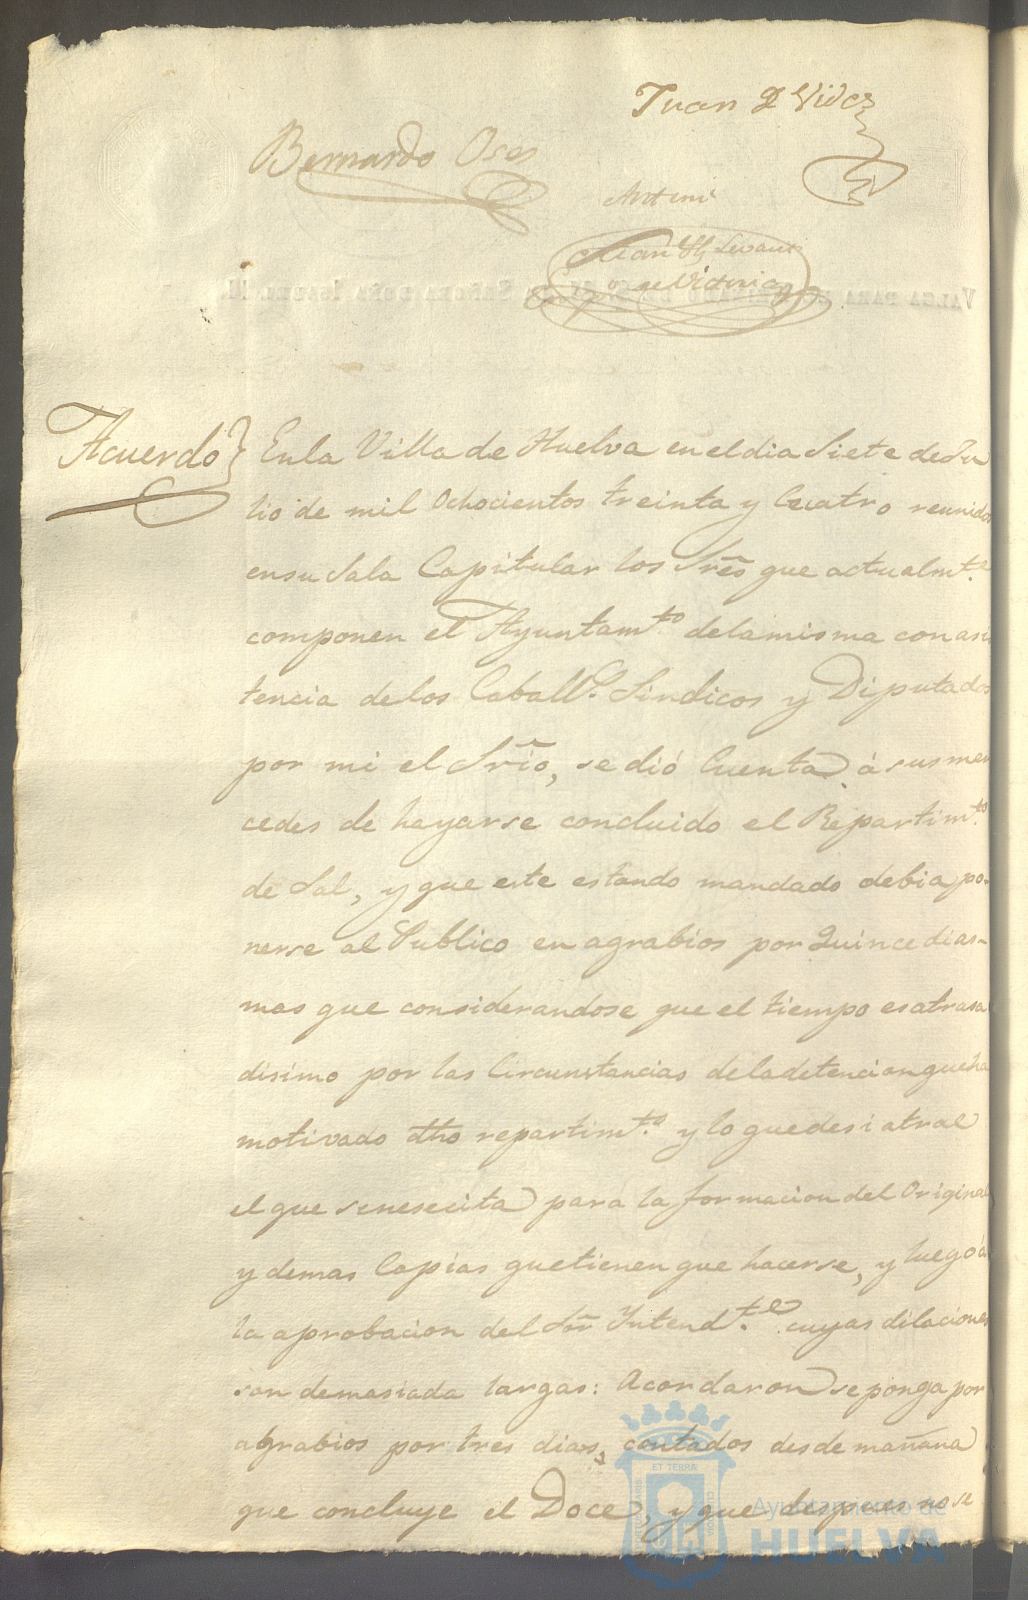 Juan
Bernardo Oses
Antemi
Juan
de Victoria
VALGA PARA EL REINADO DE S. M. LA SEÑORA DOÑA ISABEL II.
Acuerdo} En la Villa de Huelva en el dia Siete de Ju
lio de mil Ochocientos treinta y Cuatro reunidos
en su Sala Capitular los Srẽs que actualmt.e
componen el Ayuntamt.o de la misma con asis
tencia de los Caball.s Sindicos y Diputados
por mi el Srĩo, se dió Cuenta á sus mer
cedes de hayarse concluido el Repartimt.o
de Sal, y que este estando mandado debia po-
nerse al Publico en agrabios por Quince dias-
mas que considerandose que el tiempo es atrasa
disimo por las Circunstancias de la detencion que ha
motivado dho repartimt.o y lo que de si atrae
el que se nesecita para la formacion del Original
y demas Copias que tienen que hacerse, y luego á
la aprobacion del Sor Yntendt.e cuyas dilaciones
son demasiada largas: Acordaron se ponga por
agrabios por tres dias, contados desde mañana
que concluye el Doce, y que despues no se
ET TERRA
Ayuntamiento de
HUELVA